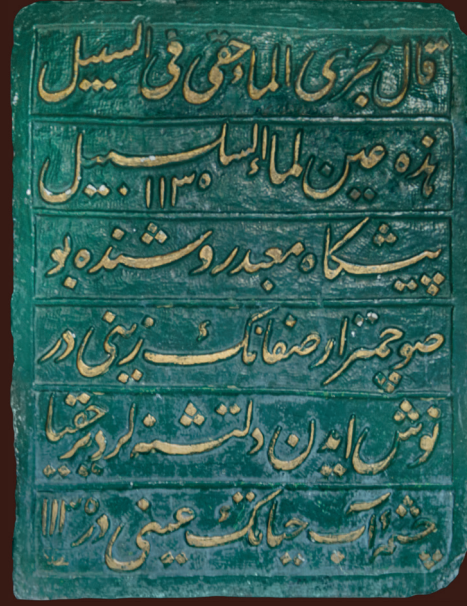 قال مجرى الماء حقى فى السبيل
هذه عين لماء السلسبيل ١١٣٥
پيشكاه معبد روشنده بو
صو چمنزار صفانك زينى در
نوش ايدن دلتشنه لر ديرحقيا
چشمهٔ آب حياتك عينى در ١١٣٥